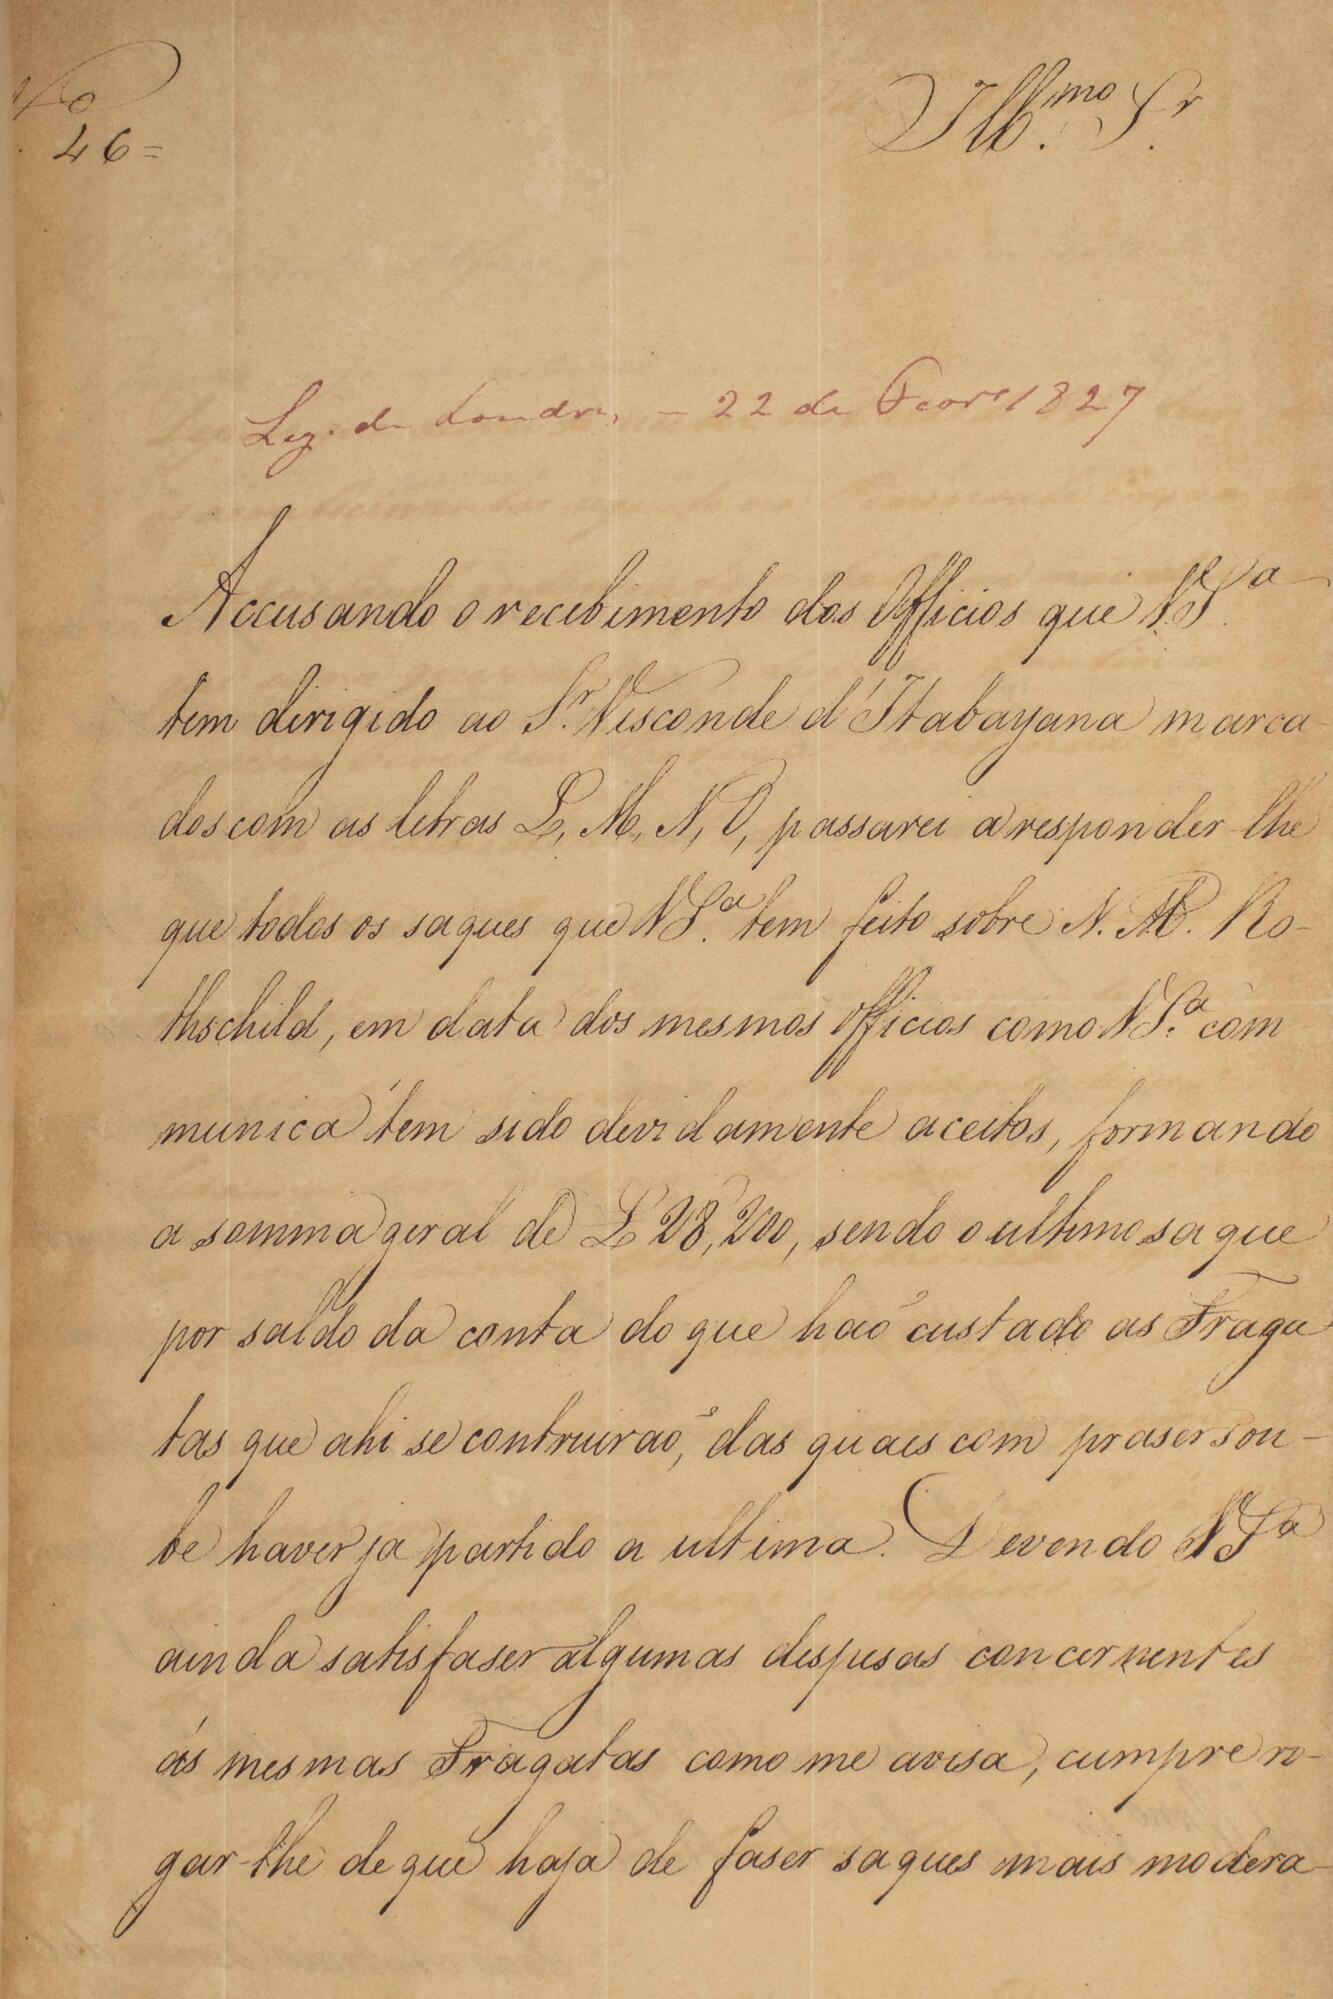 Nº
46=
Illmo. Sr.
Leg. de Londres — 22 de Fevro 1827
Accusando o recebimento dos Officios que V.Sª.
tem dirigido ao Sr. Visconde d'Itabayana marca-
dos com as letras L, M, N, O, passarei a responder-lhe
que todos os saques que V.Sª. tem feito sobre N. M. Ro-
thschild, em data dos mesmos officios como V.Sª. com
munica tem sido devidamente aceitos, formando
a somma geral de £ 28,200, sendo o ultimo saque
por saldo da conta do que haõ custado as Fraga
tas que ahi se contruiraõ, das quaes com praser sou-
be haver ja partido a ultima. Devendo V.Sª
ainda satisfaser algumas despesas concernentes
ás mesmas Fragatas como me avisa, cumpre ro-
gar-lhe de que haja de faser saques mais modera-